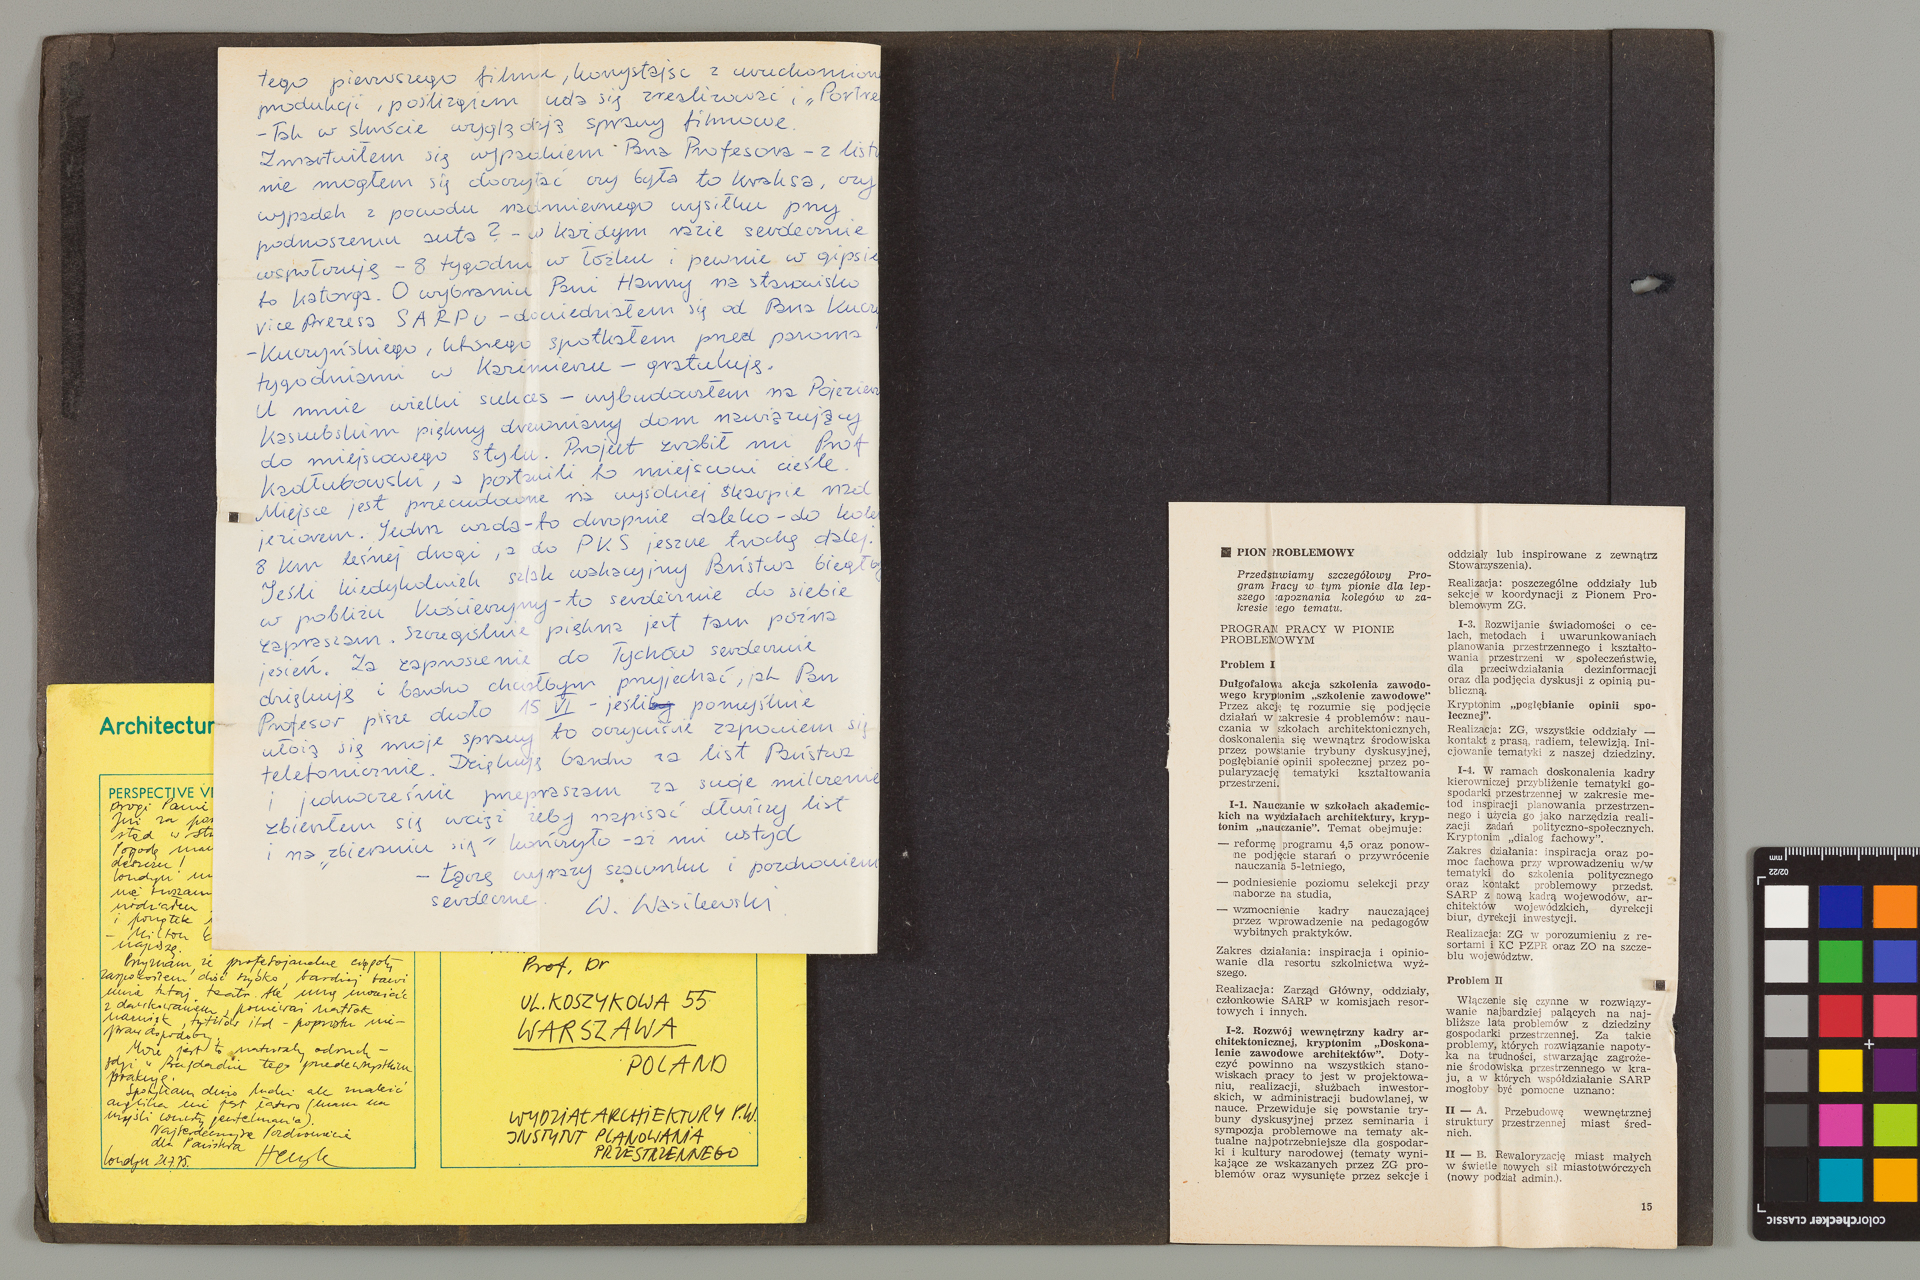 tego pierwszego filmu, korzystając z uruchomion
produkcji, poślizgiem uda się zrealizować i „Portre
- Tak w skrócie wyglądają sprawy filmowe.
Zmartwiłem się wypadkiem Pana Profesora - z listu
nie mogłem się doczytać czy była to kraksa, czy
wypadek z powodu nadmiernego wysiłku przy
podnoszeniu auta? - w każdym razie serdecznie
współczuję - 8 tygodni w łóżku i pewnie w gipsie
to katorga. O wybraniu Pani Hanny na stanowisko
vice Prezesa SARPu - dowiedziałem się od Pana Kuczy
- Kuczyńskiego, którego spotkałem przed paroma
tygodniami w Kazimierzu - gratuluję.
U mnie wielki sukces - wybudowałem na Pojezierz
Kaszubskim piękny drewniany dom nawiązujący
do miejscowego stylu. Projekt zrobił mi Prof
Kadłubowski, a postawili to miejscowi cieśle.
Miejsce jest przecudowne na wysokiej skarpie nad
jeziorem. Jedna wada - to okropnie daleko - do kolei
8 km leśnej drogi, a do PKS jeszcze trochę dalej.
Jeśli kiedykolwiek szlak wakacyjny Państwa biegłby
w pobliżu Kościerzyny - to serdecznie do siebie
zapraszam. Szczególnie piękna jest tam późna
jesień. Za zaproszenie do Tychów serdecznie
dziękuję i bardzo chciałbym przyjechać, jak Pan
Profesor pisze około 15 VI - jeśli pomyślnie
ułożą się moje sprawy to oczywiście zapowiem się
telefonicznie. Dziękuję bardzo za list Państwa
i jednocześnie przepraszam za swoje milczenie
zbierałem się wciąż żeby napisać dłuższy list
i na „zbieraniu się" kończyło - aż mi wstyd
- Łączę wyrazy szacunku i pozdrowienia
serdeczne. W. Wasilewski
Architectur
PERSPECTIVE VI
Drogi Panie
Już za
stąd w
Pogodę
deszczu!
Londyn!
nie ruszam
widziałem
i początek
- Milton
napiszę.
Przyznam że profesjonalne ciągoty
zaspokoiłem dość szybko bardziej bawi
mnie tutaj teatr. Ale
z drukowaniem, ponieważ natłok
nazwisk, tytułów itd - poprostu nie-
prawdopodobny.
Może jest to naturalny odruch -
praktyk.
Spotykam dużo ludzi ale znaleźć
anglika nie jest łatwo (mam na
myśli
Najserdeczniejsze Pozdrowienia
dla Państwa
Londyn 21.7.75. Henryk
Prof. Dr
UL. KOSZYKOWA 55
WARSZAWA
POLAND
WYDZIAŁ ARCHIEKTURY P.W.
INSTYTUT PLANOWANIA
PRZESTRZENNEGO
PION PROBLEMOWY
Przedstawiamy szczegółowy Pro-
gram Pracy w tym pionie dla lep-
szego zapoznania kolegów w za-
kresie tego tematu.
PROGRAM PRACY W PIONIE
PROBLEMOWYM
Problem I
Długofalowa akcja szkolenia zawodo-
wego kryptonim „szkolenie zawodowe"
Przez akcję tę rozumie się podjęcie
działań w zakresie 4 problemów: nau-
czania w szkołach architektonicznych,
doskonalenia się wewnątrz środowiska
przez powstanie trybuny dyskusyjnej,
pogłębianie opinii społecznej przez po-
pularyzację tematyki kształtowania
przestrzeni.
I-1. Nauczanie w szkołach akademic-
kich na wydziałach architektury, kryp-
tonim „nauczanie". Temat obejmuje:
— reformę programu 4,5 oraz ponow-
ne podjęcie starań o przywrócenie
nauczania 5-letniego,
— podniesienie poziomu selekcji przy
naborze na studia,
— wzmocnienie kadry nauczającej
przez wprowadzenie na pedagogów
wybitnych praktyków.
Zakres działania: inspiracja i opinio-
wanie dla resortu szkolnictwa wyż-
szego.
Realizacja: Zarząd Główny, oddziały,
członkowie SARP w komisjach resor-
towych i innych.
I-2. Rozwój wewnętrzny kadry ar-
chitektonicznej, kryptonim „Doskona-
lenie zawodowe architektów". Doty-
czyć powinno na wszystkich stano-
wiskach pracy to jest w projektowa-
niu, realizacji, służbach inwestor-
skich, w administracji budowlanej, w
nauce. Przewiduje się powstanie try-
buny dyskusyjnej przez seminaria i
sympozja problemowe na tematy ak-
tualne najpotrzebniejsze dla gospodar-
ki i kultury narodowej (tematy wyni-
kające ze wskazanych przez ZG pro-
blemów oraz wysunięte przez sekcje i
oddziały lub inspirowane z zewnątrz
Stowarzyszenia).
Realizacja: poszczególne oddziały lub
sekcje w koordynacji z Pionem Pro-
blemowym ZG.
I-3. Rozwijanie świadomości o ce-
lach, metodach i uwarunkowaniach
planowania przestrzennego i kształto-
wania przestrzeni w społeczeństwie,
dla przeciwdziałania dezinformacji
oraz dla podjęcia dyskusji z opinią pu-
bliczną.
Kryptonim „pogłębianie opinii spo-
łecznej".
Realizacja: ZG, wszystkie oddziały —
kontakt z prasą, radiem, telewizją. Ini-
cjowanie tematyki z naszej dziedziny.
I-4. W ramach doskonalenia kadry
kierowniczej przybliżenie tematyki go-
spodarki przestrzennej w zakresie me-
tod inspiracji planowania przestrzen-
nego i użycia go jako narzędzia reali-
zacji zadań polityczno-społecznych.
Kryptonim „dialog fachowy".
Zakres działania: inspiracja oraz po-
moc fachowa przy wprowadzeniu w/w
tematyki do szkolenia politycznego
oraz kontakt problemowy przedst.
SARP z nową kadrą wojewodów, ar-
chitektów wojewódzkich, dyrekcji
biur, dyrekcji inwestycji.
Realizacja: ZG w porozumieniu z re-
sortami i KC PZPR oraz ZO na szcze-
blu województw.
Problem II
Włączenie się czynne w rozwiązy-
wanie najbardziej palących na naj-
bliższe lata problemów z dziedziny
gospodarki przestrzennej. Za takie
problemy, których rozwiązanie napoty-
ka na trudności, stwarzając zagroże-
nie środowiska przestrzennego w kra-
ju, a w których współdziałanie SARP
mogłoby być pomocne uznano:
II — A. Przebudowę wewnętrznej
struktury przestrzennej miast śred-
nich.
II — B. Rewaloryzację miast małych
w świetle nowych sił miastotwórczych
(nowy podział admin.).
15
mm
02/22
colorchecker CLASSIC